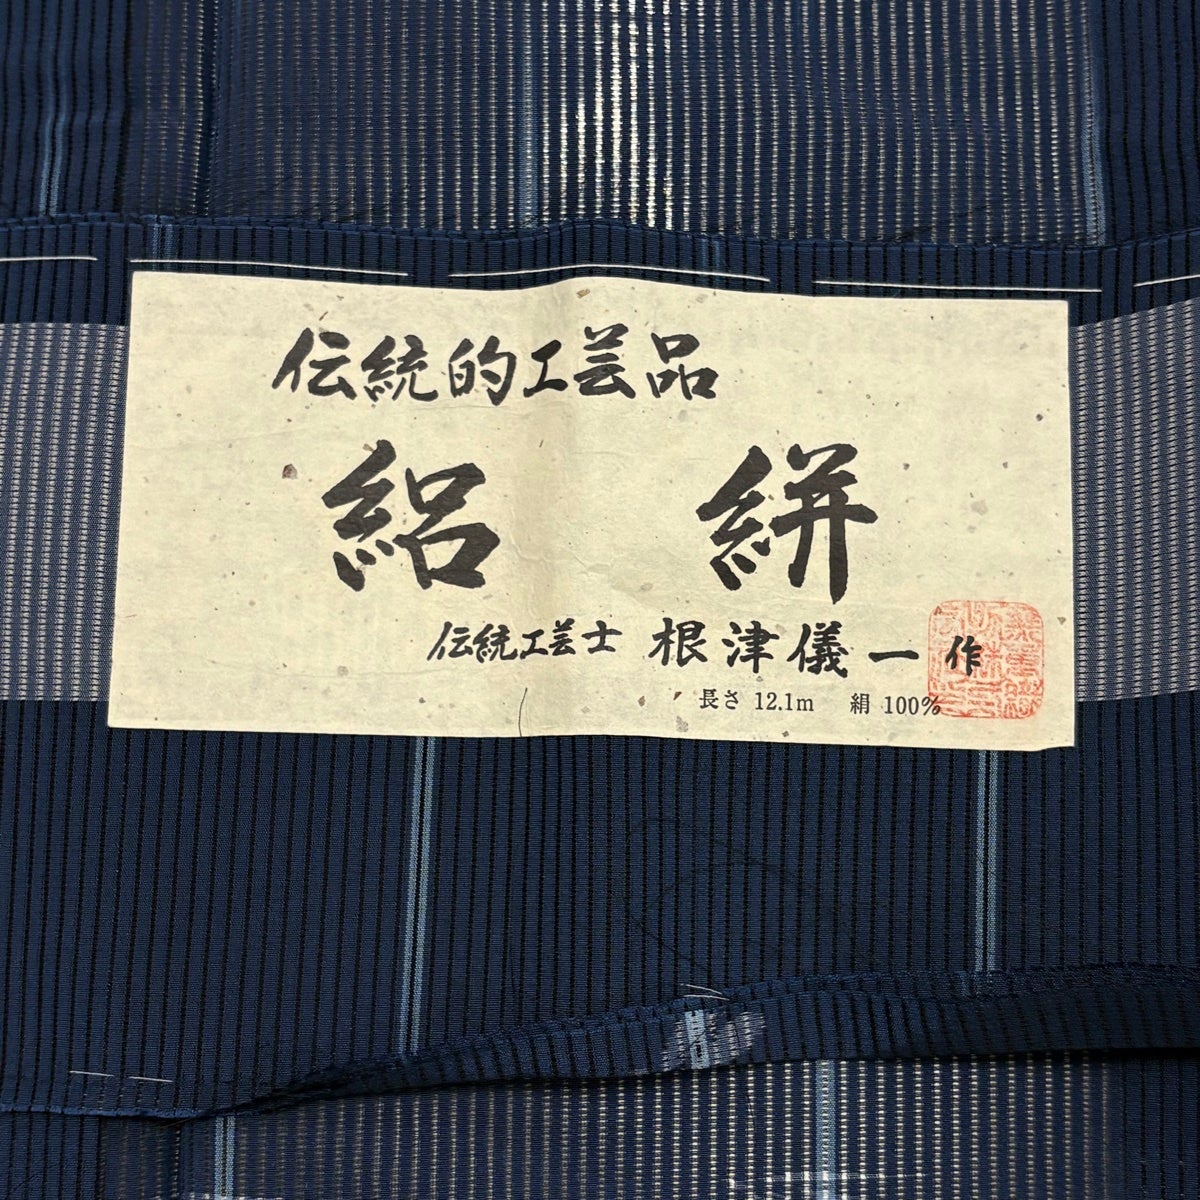 伝統的工芸品
絽 絣
伝統工芸士 根津儀一作
長さ 12.1m 絹 100%